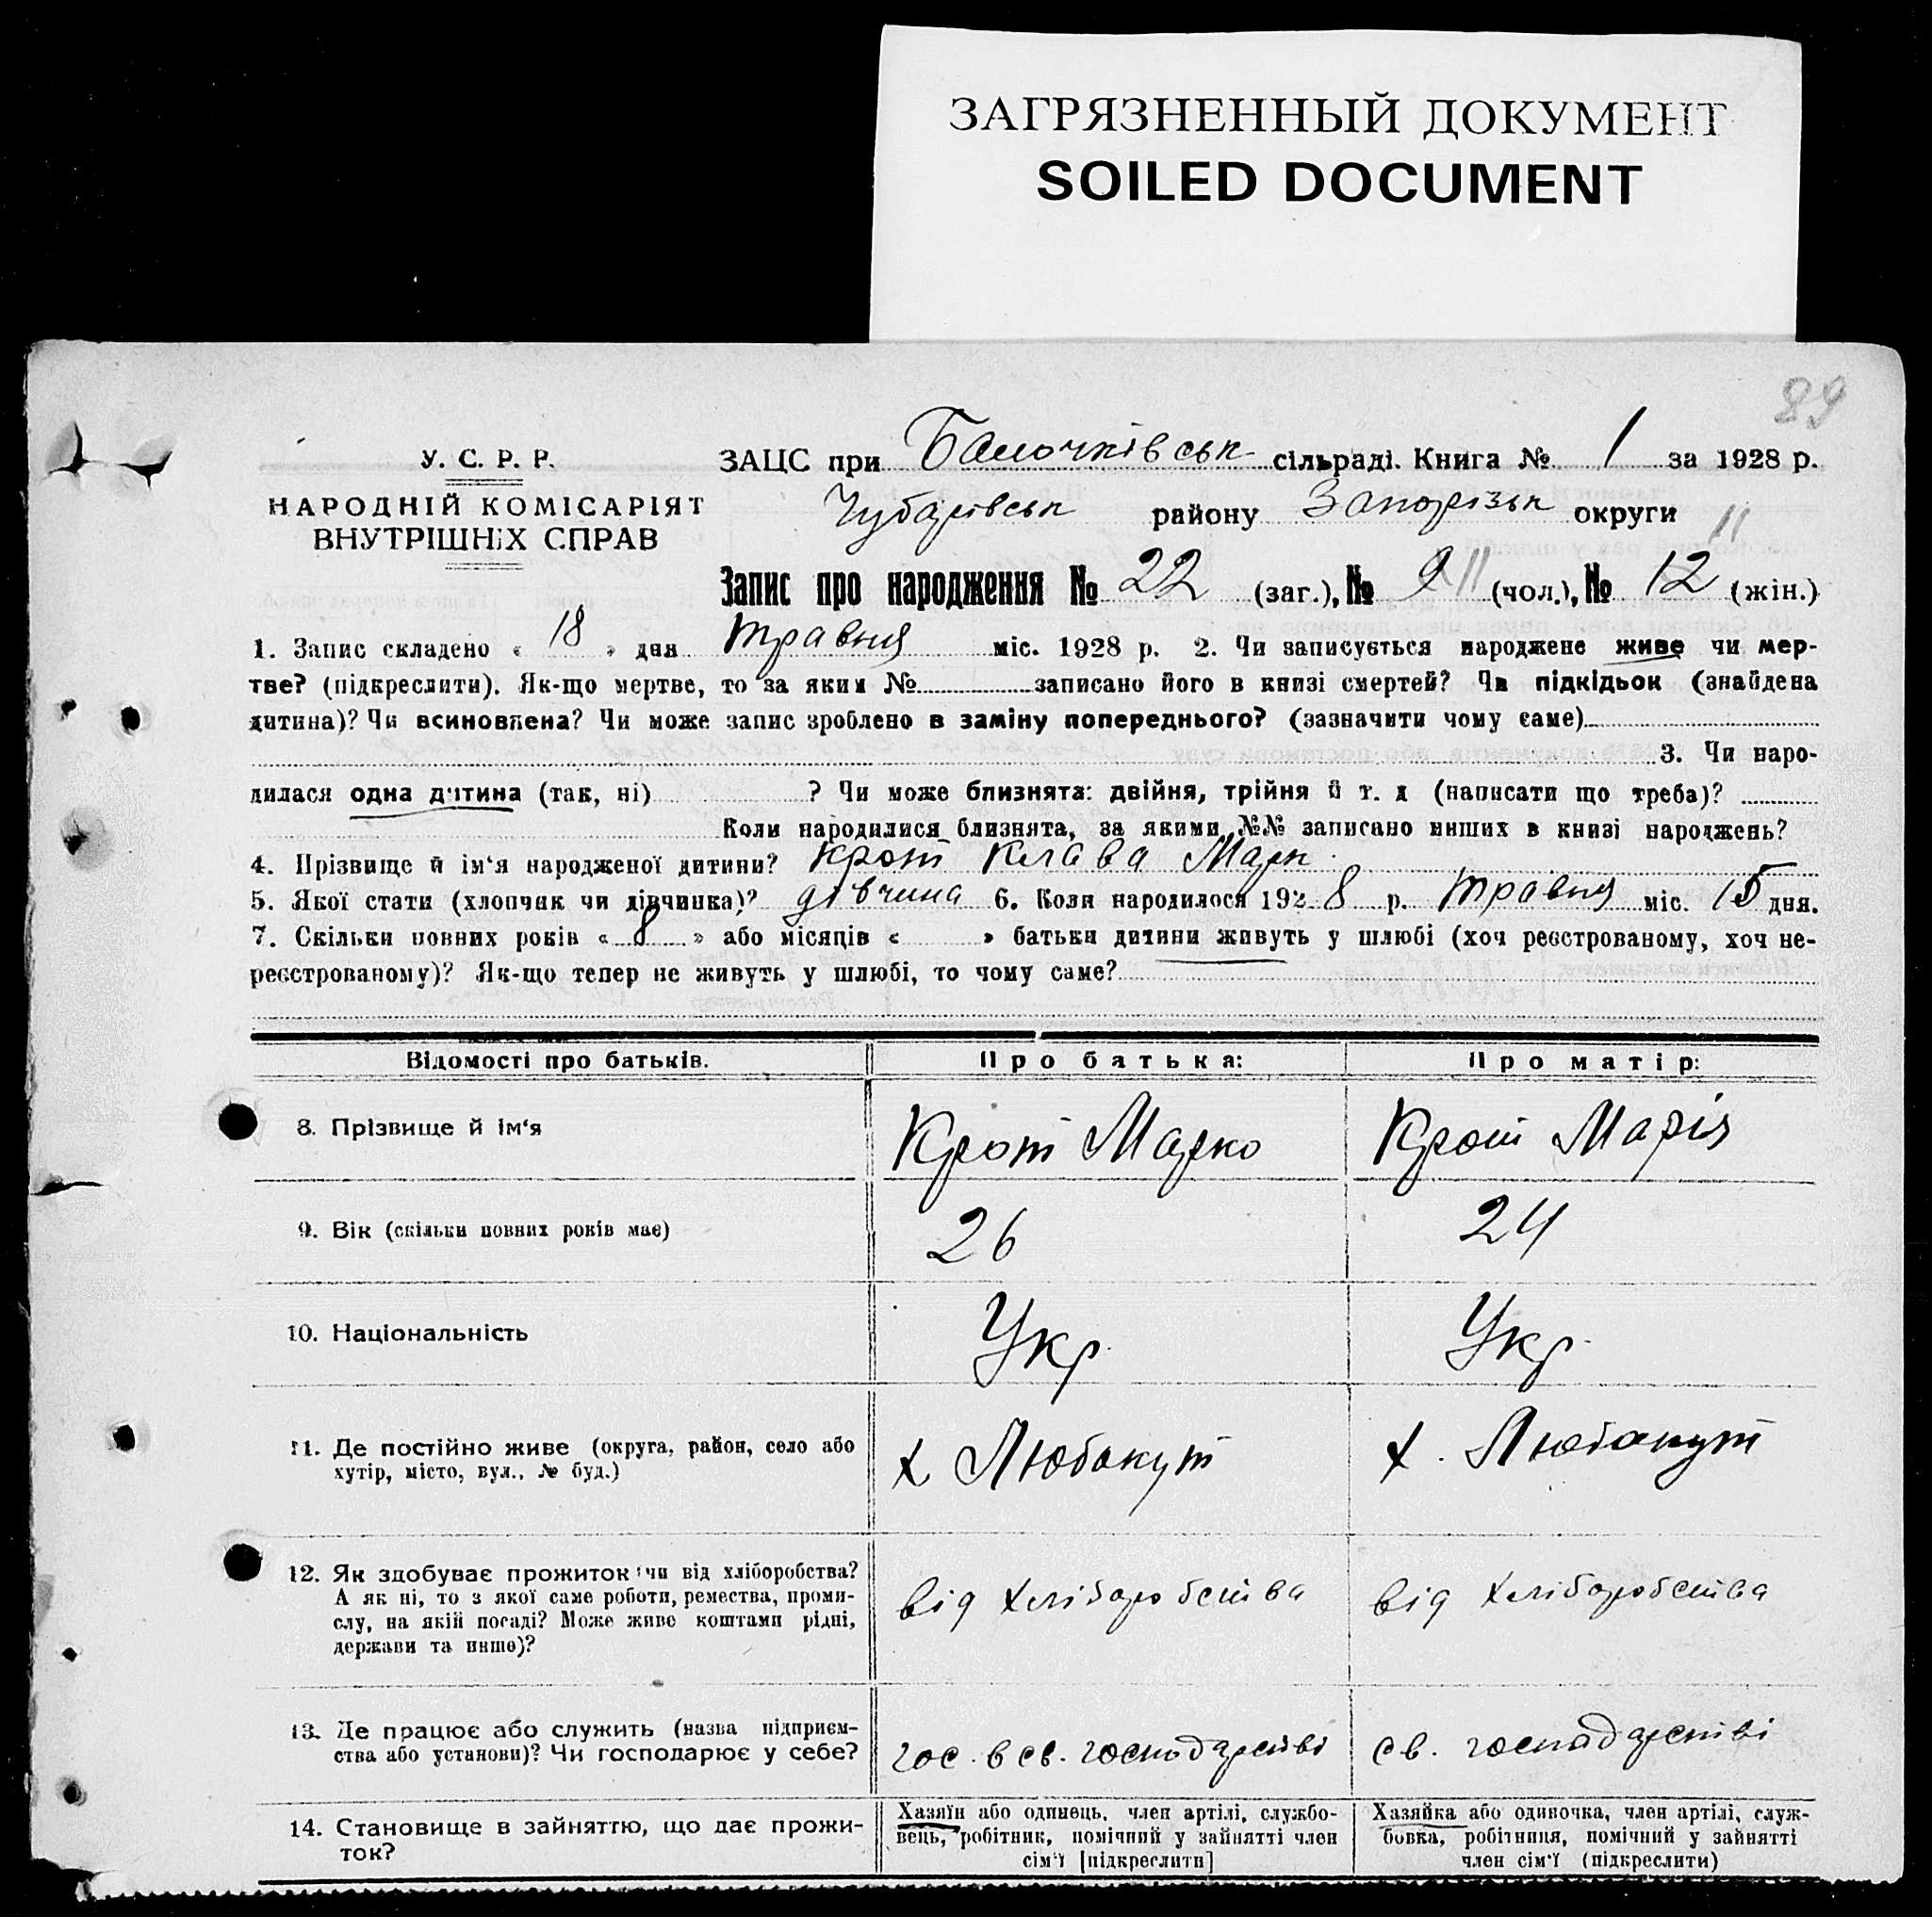 ЗАГРЯЗНЕННЫЙ ДОКУМЕНТ
SOILED DOCUMENT
89
У. С. Р. Р.
НАРОДНІЙ КОМІСАРІЯТ
ВНУТРІШНІХ СПРАВ
ЗАЦС при Балочківськ сільраді. Книга № 1 за 1928 р.
Чубарівськ району Запорізьк округи
11
Запис про народження № 22 (заг.), № 9 11 (чол.), № 12 (жін.)
1. Запис складено « 18 » дня травня міс. 1928 р. 2. Чи записується народжене живе чи мер-
тве? (підкреслити). Як-що мертве, то за яким № записано його в книзі смертей? Чи підкідьок (знайдена
дитина)? Чи всиновлена? Чи може запис зроблено в заміну попереднього? (зазначити чому саме)
3. Чи наро-
дилася одна дитина (так, ні) ? Чи може близнята: двійня, трійня й т. д (написати що треба)?
Коли народилися близнята, за якими №№ записано инших в книзі народжень?
4. Прізвище й ім‘я народженої дитини? Крот Клава Марк.
5. Якої стати (хлопчик чи дівчинка)? дівчина 6. Коли народилося 1928 р. травня міс. 15 дня.
7. Скільки повних років « 8 » або місяців « » батьки дитини живуть у шлюбі (хоч реєстрованому, хоч не-
реєстрованому)? Як-що тепер не живуть у шлюбі, то чому саме?
Відомості про батьків. Про батька: Про матір:
8. Прізвище й ім‘я Крот Марко Крот Марія
9. Вік (скільки повних років має) 26 24
10. Національність Укр. Укр.
11. Де постійно живе (округа, район, село або
хутір, місто, вул., № буд.)
х Любакут х. Любакут
12. Як здобуває прожиток: чи від хліборобства?
А як ні, то з якої саме роботи, ремества, проми-
слу, на якій посаді? Може живе коштами рідні,
держави та инше)?
від хліборобства від хліборобства
13. Де працює або служить (назва підприєм-
ства або установи)? Чи господарює у себе?
гос. в св. господарстві св. господарстві
14. Становище в зайняттю, що дає прожи-
ток?
Хазяїн або одинець, член артілі, службо-
вець, робітник, помічний у зайнятті член
сім‘ї [підкреслити]
Хазяйка або одиночка, член артілі, служ-
бовка, робітниця, помічний у зайнятті
член сім‘ї (підкреслити)